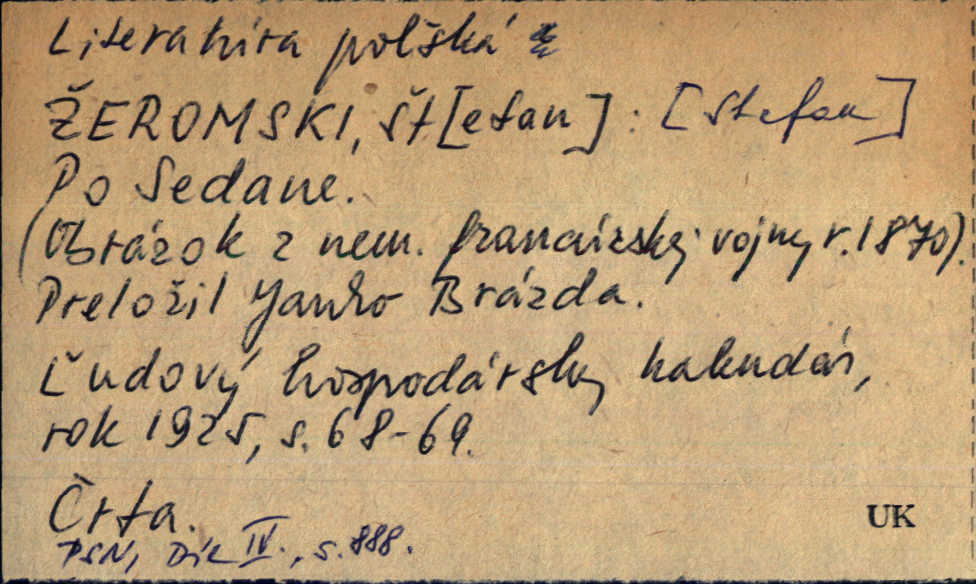 Literatúra polská
ŽEROMSKI, Št[efan] : [Stefan]
Po Sedane.
(Obrázok z nem. francúzskej vojny r. 1870).
Preložil Janko Brázda.
Ľudový hospodársky kalendár,
rok 1925, s. 68-69.
Črta.
UK
PSN, Die IV., s. 888.